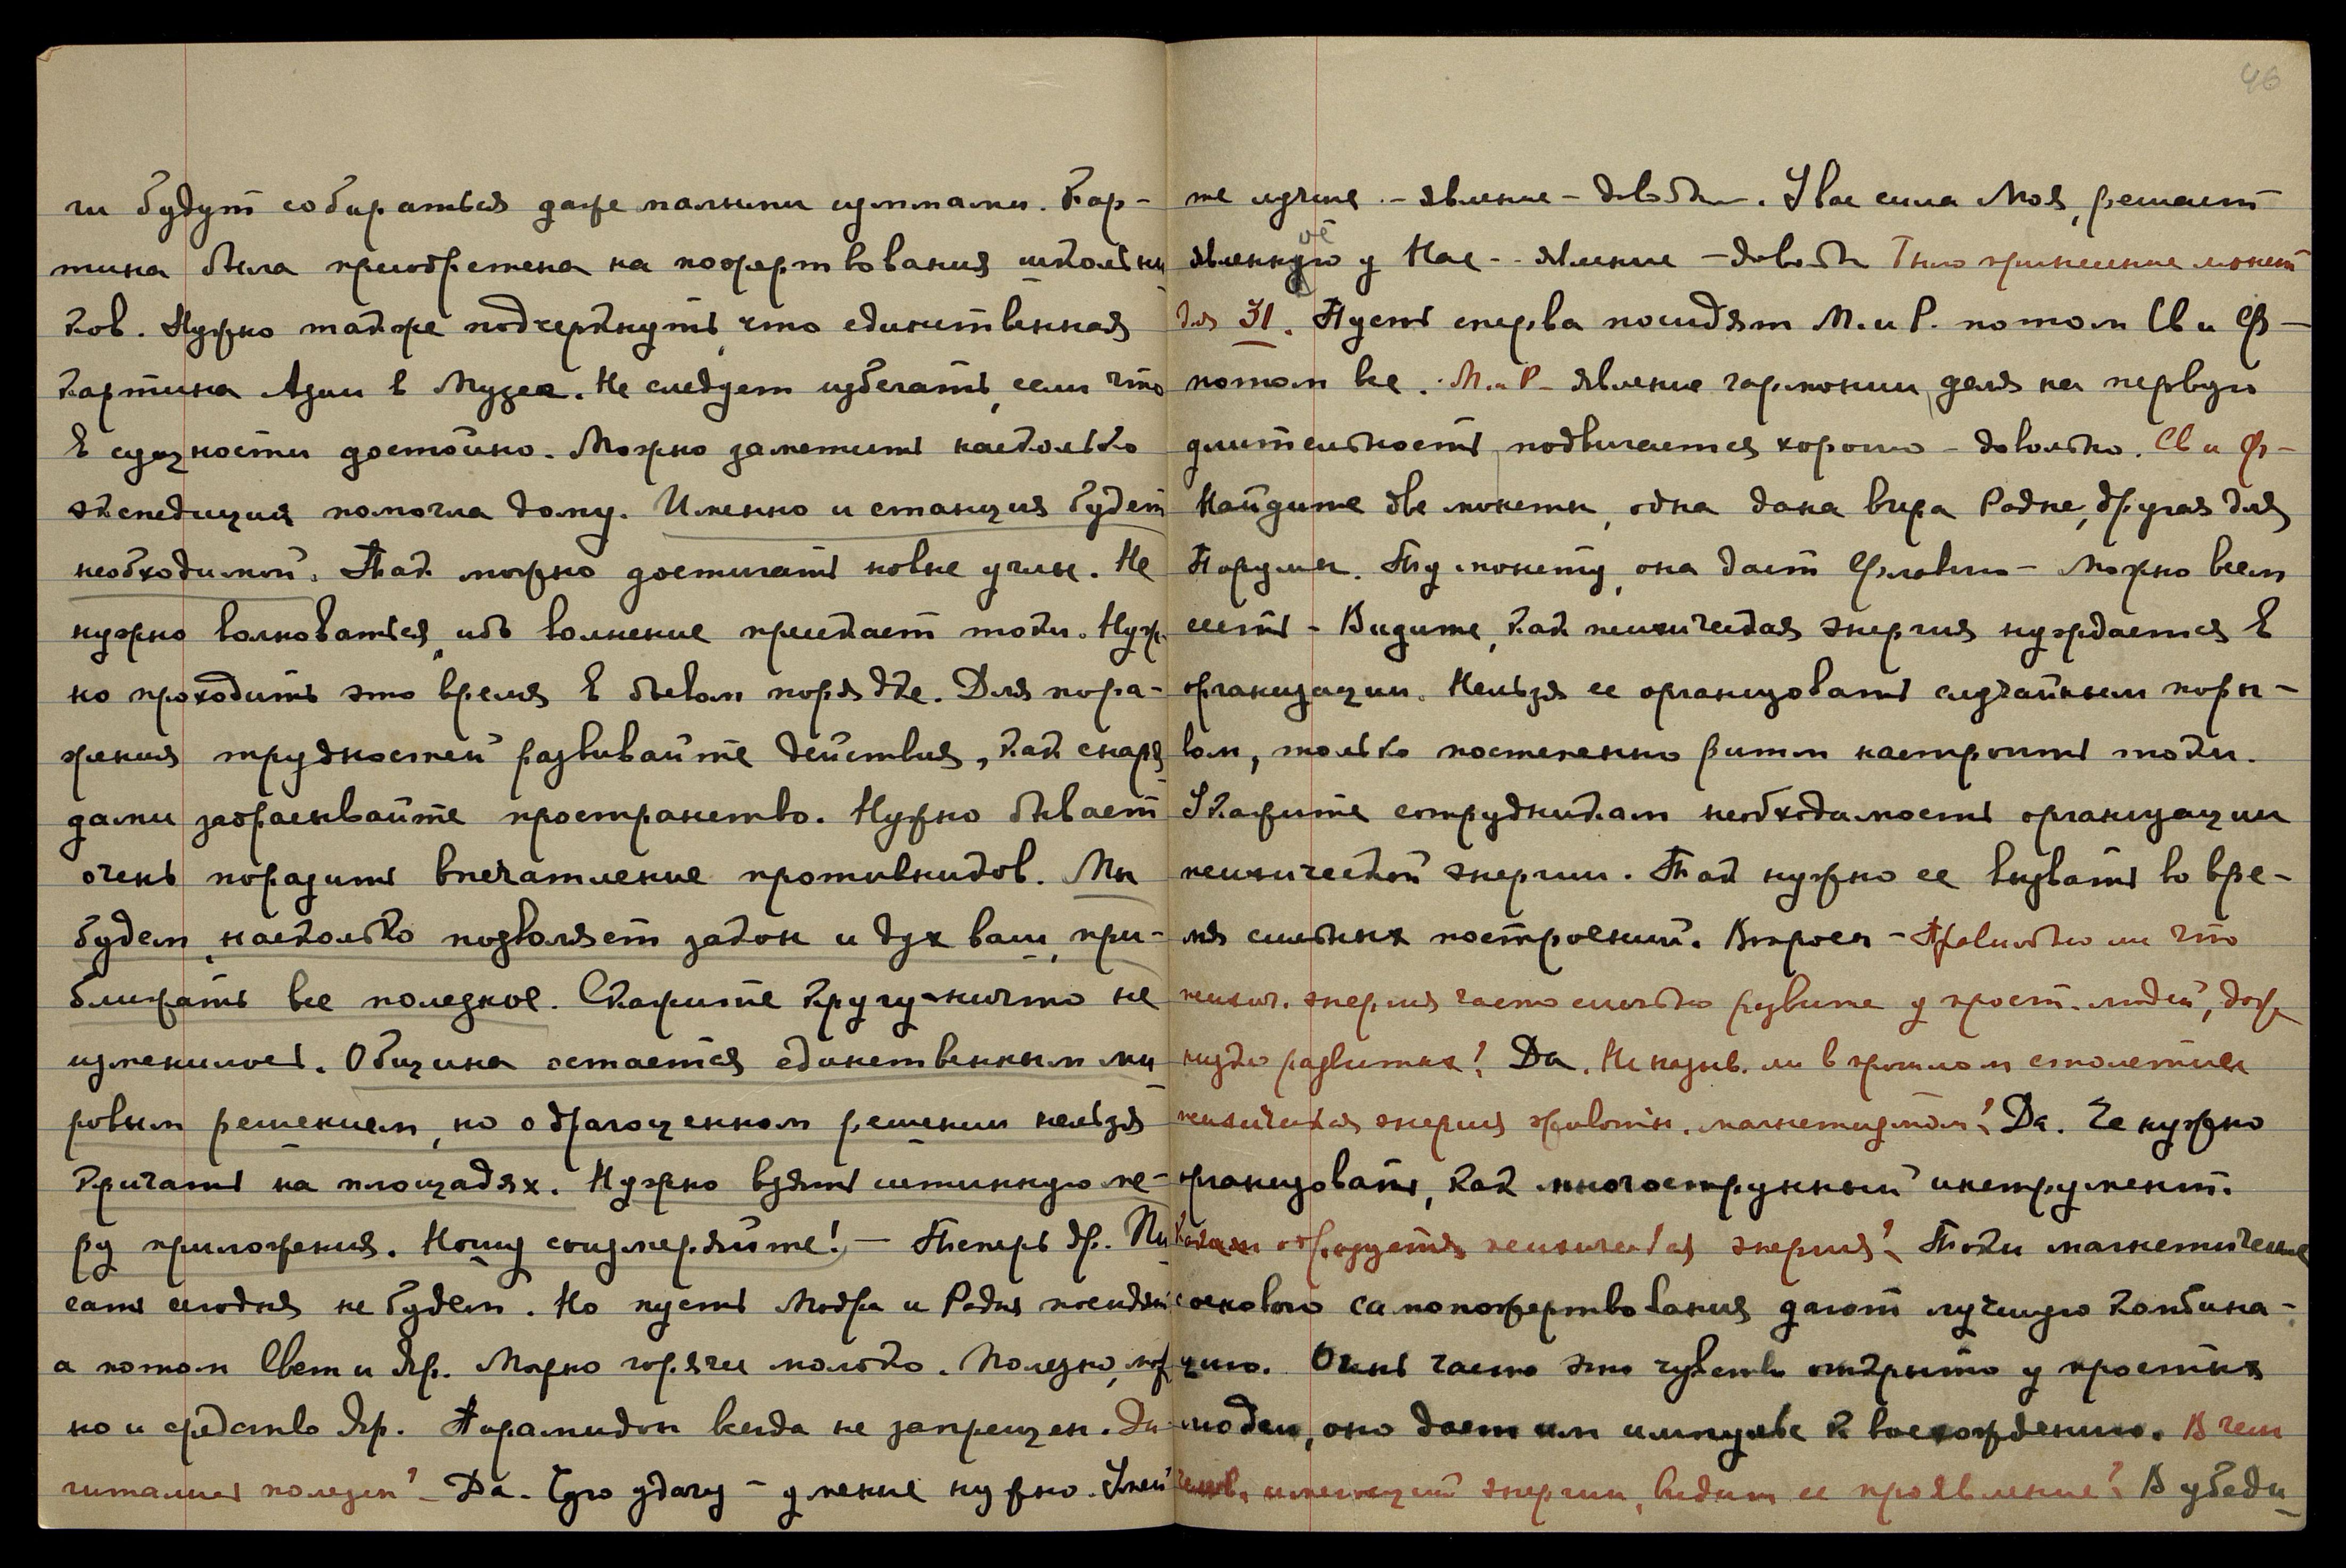 ги будут собираться даже малыми суммами. Кар-
тина была приобретена на пожертвования школьни
ков. Нужно также подчеркнуть, что единственная
картина Азии в Музее. Не следует избегать, если что
в сущности достойно. Можно заметить насколько
экспедиция помогла дому. Именно и станция будет
необходимой. Так можно достигать новые умы. Не
нужно волноваться, ибо волнение пресекает токи. Нуж-
но проходить это время в боевом порядке. Для пора-
жения трудностей развивайте действия, как снаря
дами забрасывайте пространство. Нужно бывает
очень поразить впечатление противников. Мы
будем, насколько позволяет закон и дух ваш, при-
ближать все полезное. Скажите кругу – ничто не
изменилось. Община остается единственным ми
ровым решением, но о драгоценном решении нельзя
кричать на площадях. Нужно взять истинную ме-
ру приложения. Ношу соизмеряйте! – Теперь др. Пи
сать сегодня не будем. Но пусть Модра и Радна посидят
а потом Свет и Яр. Можно горячее молоко. Полезно, мож
но и средство Яр. Пирамидон всегда не запрещен. Ди
гиталис полезен? – Да. Чую удачу – умение нужно. Умей
46
те лучше – явление – довольно. У вас сила Моя, решает
явленную у Нас – явление – довольно
для 31. Пусть сперва посидят М. и Р. потом Св и Яр –
потом все. М. и Р – явление гармонии, деля на первую
длительность, подвигается хорошо – довольно. Св и Яр –
Найдите две монеты, одна дана вчера Радне, другая для
Порумы. Ту монету она даст – Можно всем
сесть – Видите, как психическая энергия нуждается в
организации. Нельзя ее организовать случайным поры-
вом, только постепенно ритм настроит токи.
Укажите сотрудникам необходимость организации
психической энергии. Так нужно ее вызвать во вре-
мя сильных построений. Вопросы – Правильно ли что
психич. энергия часто сильно развита у прост. людей, даж
низко развитых? Да. Не назыв. ли в прошлом столетии
психическая энергия животн. магнетизмом? Да. Ее нужно
организовать, как многострунный инструмент.
Как образуется психическая энергия? Токи магнетические
основою самопожертвования дают лучшую комбина-
цию. Очень часто это чувство открыто у простых
людей, оно дает им импульс к восхождению. В чем
человек, имеющий энергии, видит ее проявление? В убеди